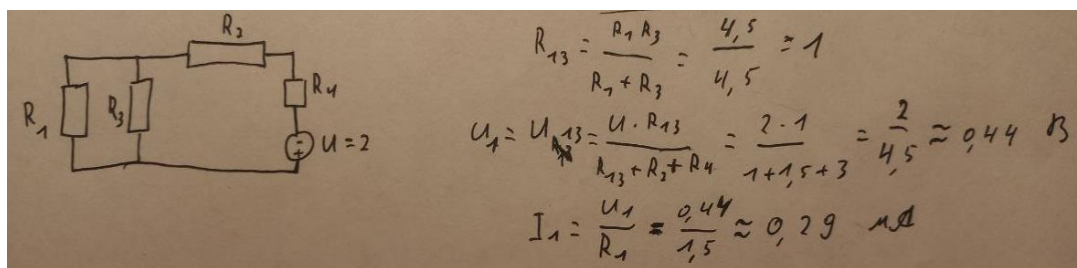 R₂
R₄
R₁
R₃
U = 2
R₁₃ = R₁ R₃ / R₁ + R₃ = 4,5 / 4,5 = 1
U₁ = U₁₃ = U · R₁₃ / R₁₃ + R₂ + R₄ = 2 · 1 / 1 + 1,5 + 3 = 2 / 4,5 ≈ 0,44 В
I₁ = U₁ / R₁ = 0,44 / 1,5 ≈ 0,29 мА